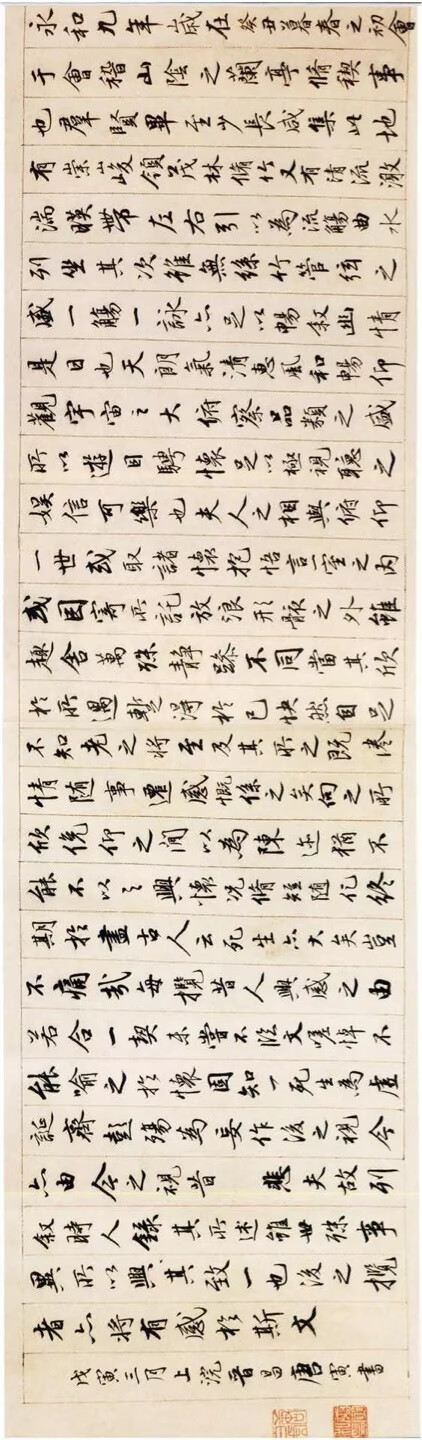 永和九年歲在癸丑暮春之初會
于會稽山陰之蘭亭脩稧事
也羣賢畢至少長咸集此地
有崇峻領茂林脩竹又有清流激
湍暎帶左右引以為流觴曲水
列坐其次雖無絲竹管弦之
盛一觴一詠亦足以暢叙幽情
是日也天朗氣清惠風和暢仰
觀宇宙之大俯察品類之盛
所以遊目騁懷足以極視聽之
娛信可樂也夫人之相與俯仰
一世或取諸懷抱悟言一室之內
或因寄所託放浪形骸之外雖
趣舍萬殊靜躁不同當其欣
於所遇暫得於己快然自足
不知老之將至及其所之既惓
情隨事遷感慨係之矣向之所
欣俛仰之間以為陳迹猶不
能不以之興懷况脩短隨化終
期於盡古人云死生亦大矣豈
不痛哉每攬昔人興感之由
若合一契未嘗不臨文嗟悼不
能喻之於懷固知一死生為虛
誕齊彭殤為妄作後之視今
亦由今之視昔 悲夫故列
叙時人錄其所述雖世殊事
異所以興其致一也後之攬
者亦將有感於斯文
戊寅三月上浣晉昌唐寅書